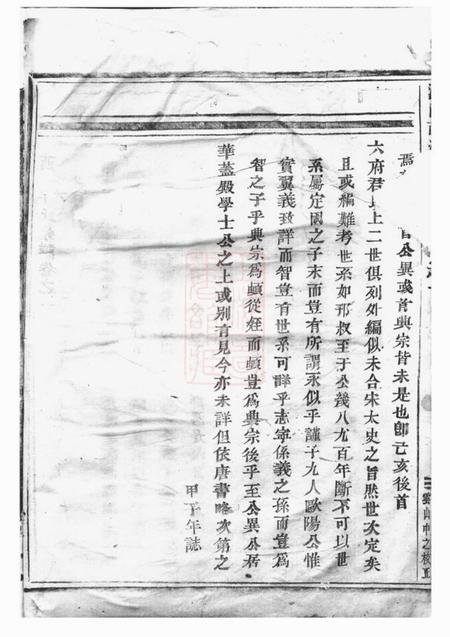 公異或首興宗皆未是也卽己亥後首
六府君
上二世俱列外編似未合宋太史之旨然世次定矣
且或編難考世系如邢叔至于公幾八九百年斷不可以世
系屬定園之子末而豈有所謂永似乎謹子九人歐陽公惟
實翼義致詳而智豈有世系可詳乎志寧係義之孫而豈爲
智之子乎興宗爲頔從姪而頔豈爲興宗後乎至公異公居
華蓋殿學士公之上或別有見今亦未詳但依唐書略次第之
甲子年誌